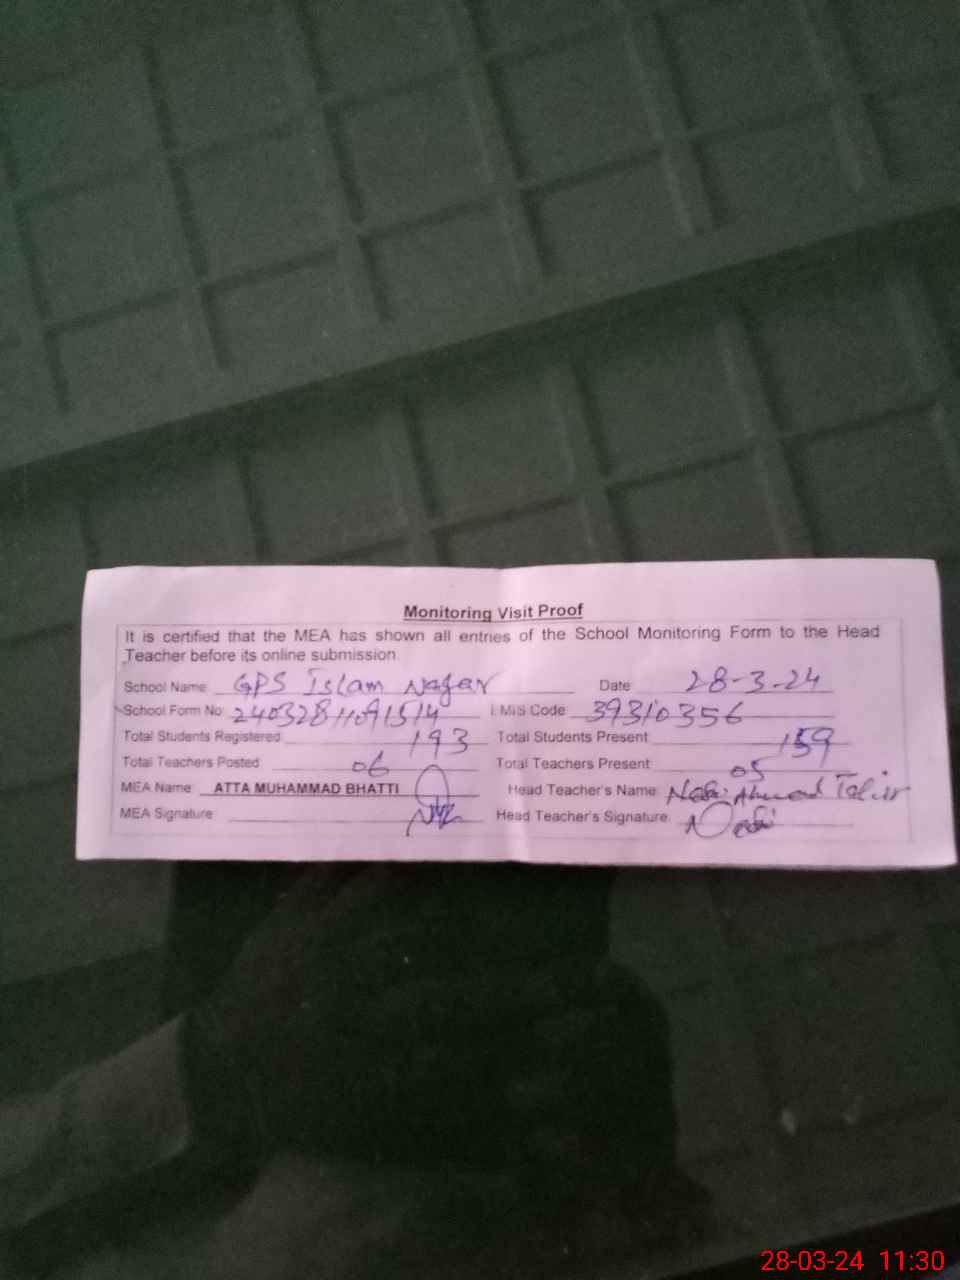 Monitoring Visit Proof
It is certified that the MEA has shown all entries of the School Monitoring Form to the Head
Teacher before its online submission.
School Name: GPS Islam Nagar Date 28-3-24
School Form No: 24032811091514 EMIS Code: 39310356
Total Students Registered 193 Total Students Present 159
Total Teachers Posted: 06 Total Teachers Present: 05
MEA Name: ATTA MUHAMMAD BHATTI Head Teacher's Name: Ahmad
MEA Signature Head Teacher's Signature
28-03-24 11:30